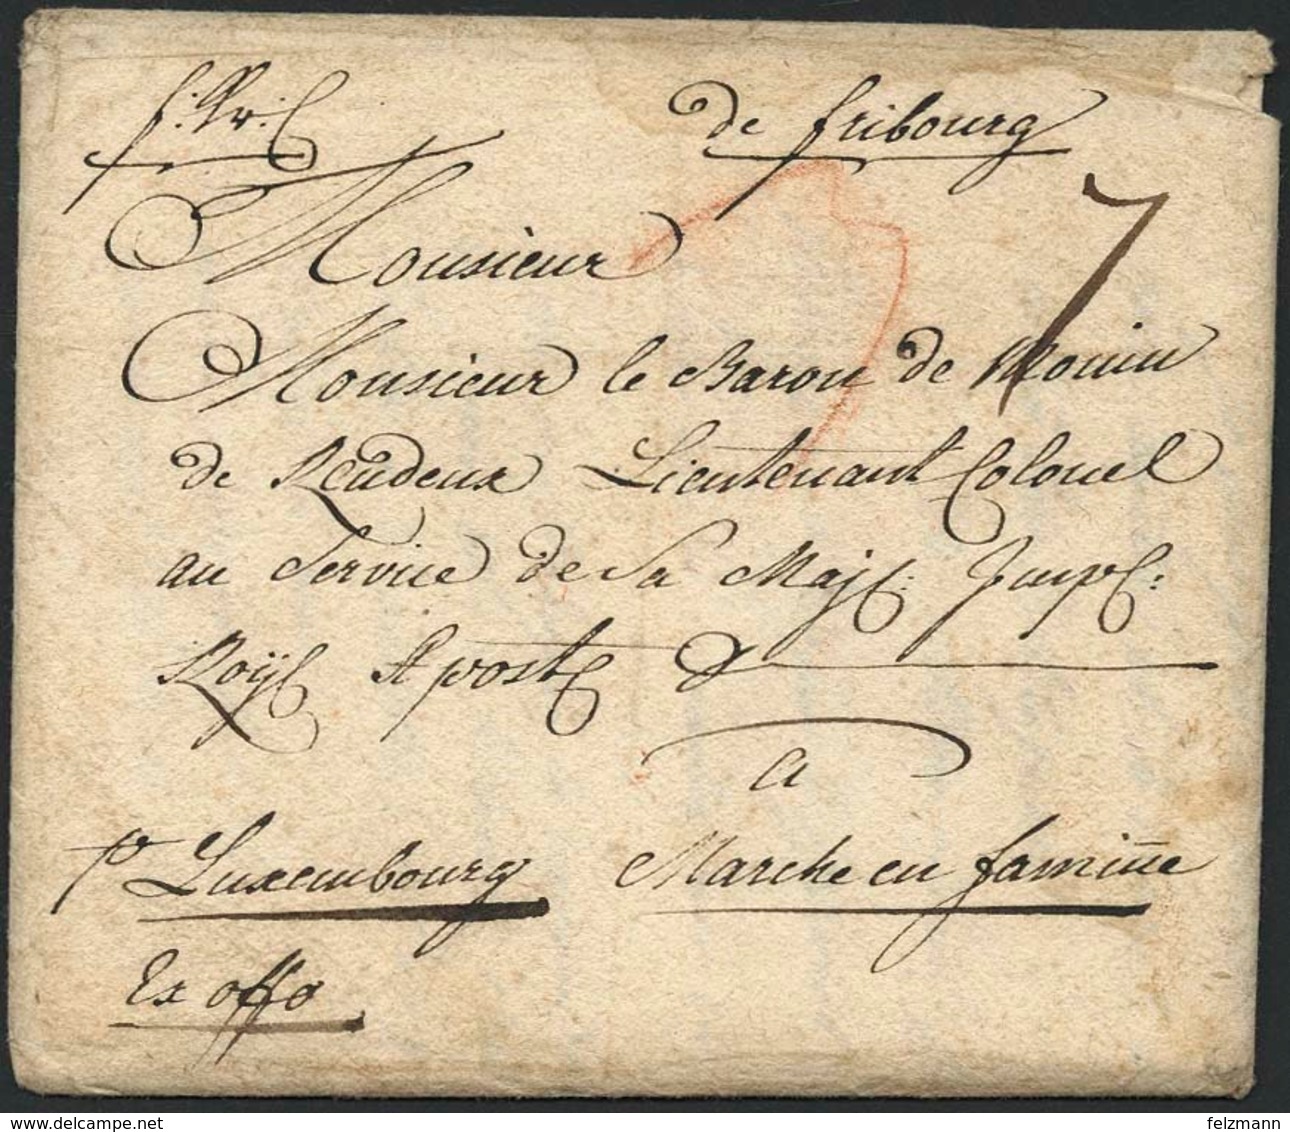 de fribourg
7
Monsieur
Monsieur le Baron de Monin
de Rendeux Lieutenant Colonel
au Service de Sa Maj: Imp:
Roy Apost
a
p Luxembourg Marche en famine
Ex offo
www.delcampe.net felzmann